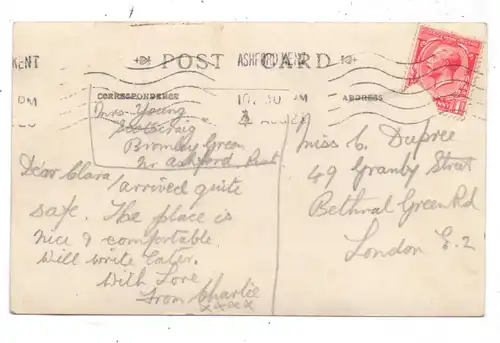 KENT
ASHFORD KENT
POST CARD
CORRESPONDENCE
ADDRESS
PM
10. 30 PM
AUG 22
Mrs Young
Bromley Green
Nr Ashford Kent
Dear Clara
Arrived quite
safe. The place is
nice & comfortable.
Will write later.
With Love
From Charlie
x x x x
Miss C. Dupree
49 Granby Street
Bethnal Green Rd
London E.2